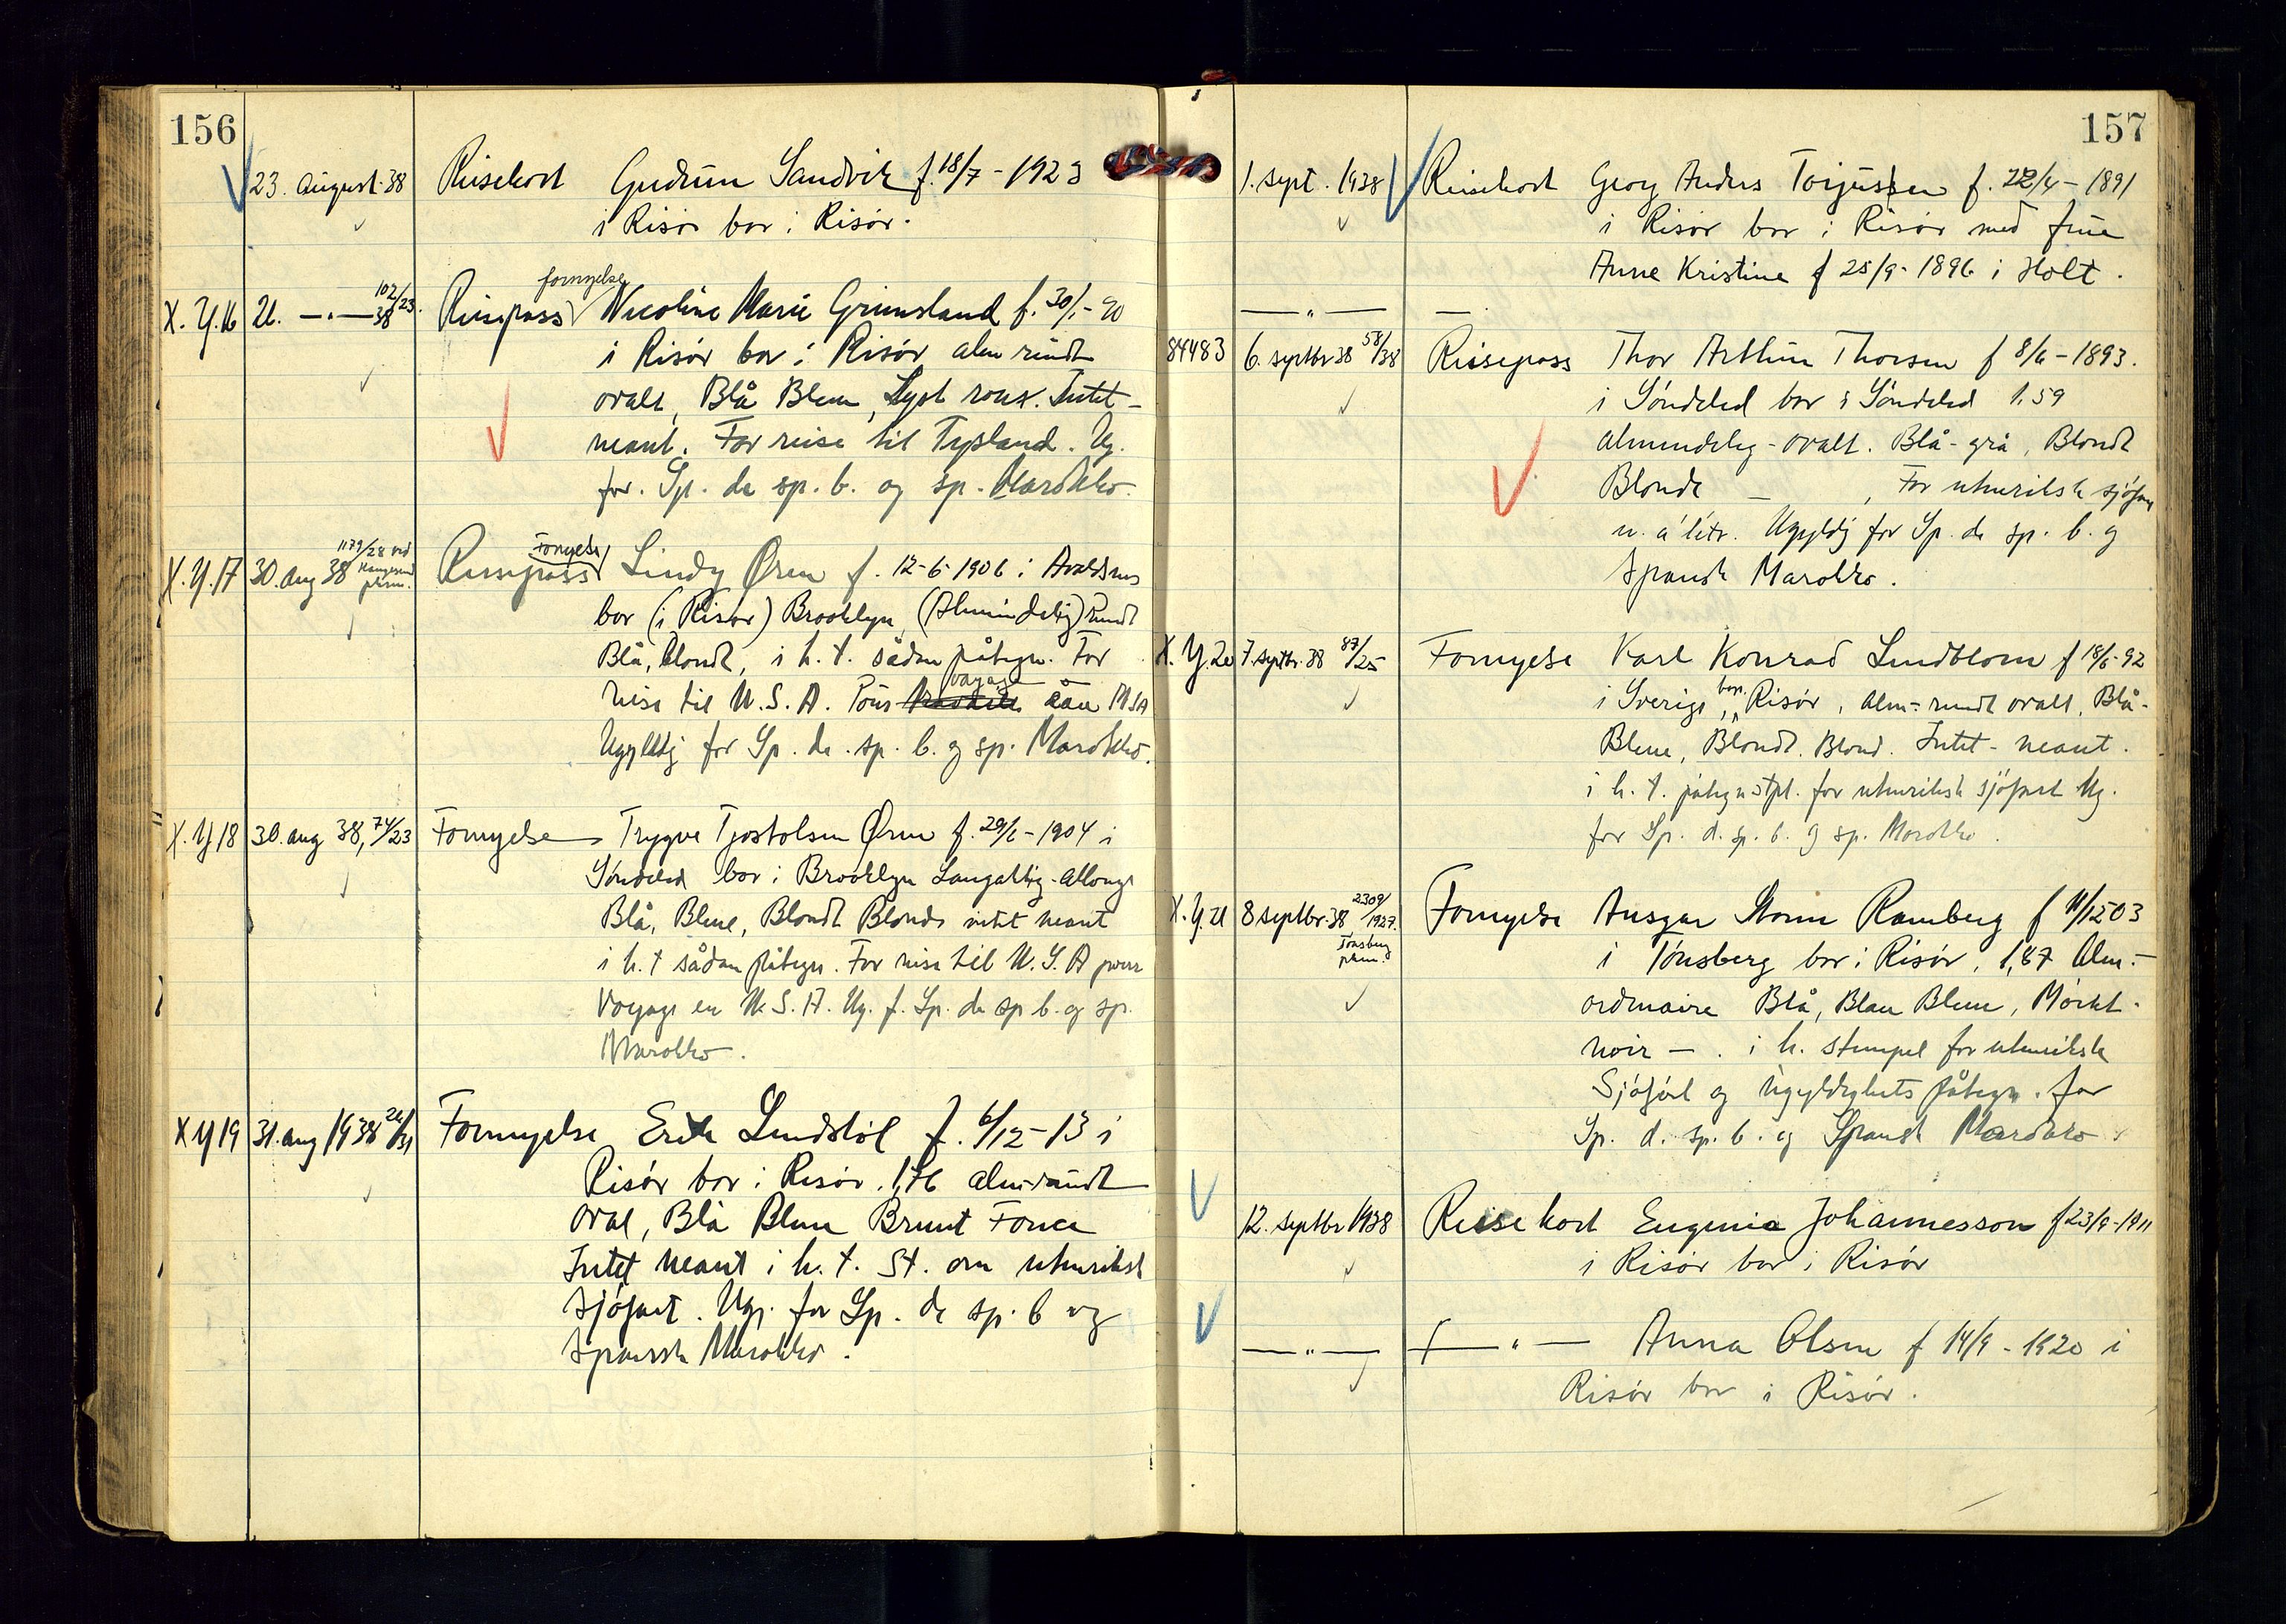 156
23. august 38 Reisekort Gudrun Sandvik f. 18/7 - 1923
i Risör bor i Risör.
fornyelse
X. Y. 16 26. —„— 38 102/23. Reisepass Nicoline Marie Grimsland f. 30/1 - 90
i Risör bor i Risör alm rundt
ovalt, Blå Bleu, Lyst roux. Intet -
neant. For reise til Tyskland. Ug.
for. Sp. de sp. b. og sp. Marokko.
Fornyelse
X. Y. 17 30. aug 38 1179/28 ved Haugesund pkm. Reisepass Lindy Ören f. 12-6-1906 i Avaldsnes
bor (i Risör) Brooklyn, (Almindelig) rundt
Blå, blondt, i h. t. sådan påtegn. For
voyage
reise til U. S. A. Pour aau USA
Ugyldig for Sp. de. sp. b. og sp. Marokko.
X. Y 18 30. aug 38, 74/23 Fornyelse Trygve Tjostolsen Ören f. 29/6 - 1904 i
Söndeled bor i Brooklyn Langaktig - allongé
Blå, Bleue, Blondt Blonde intet neant
i h. t sådan påtegn. For reise til U. S. A pour
Voyage en U. S. A. Ug. f. Sp. de sp b. og sp.
Marokko.
X Y 19 31. aug 1938 26/31 Fornyelse Erik Lindstöl f. 6/12 - 13 i
Risör bor i Risör. 1,76 alm-rundt
Oval, Blå Bleue Brunt Fonce
Intet neant i h. t. St. om utenriksk
sjöfart. Ug. for Sp. de sp. b og
Spansk Marokko.
157
1. sept. 1938 Reisekort Georg Anders Torjussen f. 22/4 - 1891
i Risör bor i Risör med frue
Anne Kristine f 25/9 - 1896 i Holt.
—„— —
84483 6. septbr 38 58/38 Reisepass Thor Arthur Thorsen f 8/6 - 1893.
i Söndeled bor i Söndeled 1.59
almindelig - ovalt. Blå - grå, Blondt
Blonde — , For utenriksk sjöfart
u. a. Ugyldig for Sp. de sp. b. og
Spansk Marokko.
X. Y. 20 7. septbr. 38 87/25 Fornyelse Karl Konrad Lindblom f 18/6 - 92
i Sverige, bor. i Risör, alm - rundt ovalt, Blå -
Bleue, Blondt. Blond. Intet - neant.
i h. t. påtegn stpl. for utenriksk sjöfart Ug.
for Sp. d. sp. b. og sp. Marokko.
X. Y. 21 8 septbr. 38 2309/1927. Tönsberg pkm. Fornyelse Ansgar Storm Ramberg f 11/12 03
i Tönsberg bor i Risör, 1,87 Alm. -
ordinaire Blå, Blau Bleue, Mörkt -
noir — . i h. stempel for utenriksk
Sjöfart og Ugyldighets påtegn. for
Sp. d. sp. b. og Spansk Marokko
12. septbr 1938 Reisekort Eugenia Johannesson f 23/9 - 1911
i Risör bor i Risör
—„— —„— Anna Olsen f 14/9 - 1920 i
Risör bor i Risör.